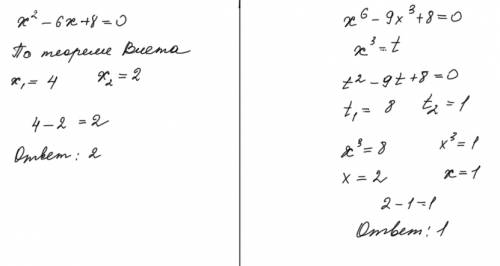 x² - 6x + 8 = 0
По теореме Виета
x₁ = 4 x₂ = 2
4 - 2 = 2
Ответ: 2
x⁶ - 9x³ + 8 = 0
x³ = t
t² - 9t + 8 = 0
t₁ = 8 t₂ = 1
x³ = 8 x³ = 1
x = 2 x = 1
2 - 1 = 1
Ответ: 1